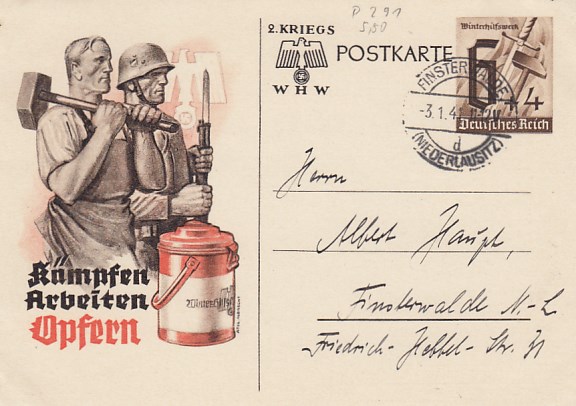 P 291
5,50
2.KRIEGS
WHW
POSTKARTE
Winterhilfswerk
6+4
Deutsches Reich
FINSTERWALDE
-3.1.41
d
(NIEDERLAUSITZ)
Herrn
Albert Haupt,
Finsterwalde N.-L
Friedrich-Hebbel-Str.
Kämpfen
Arbeiten
Opfern